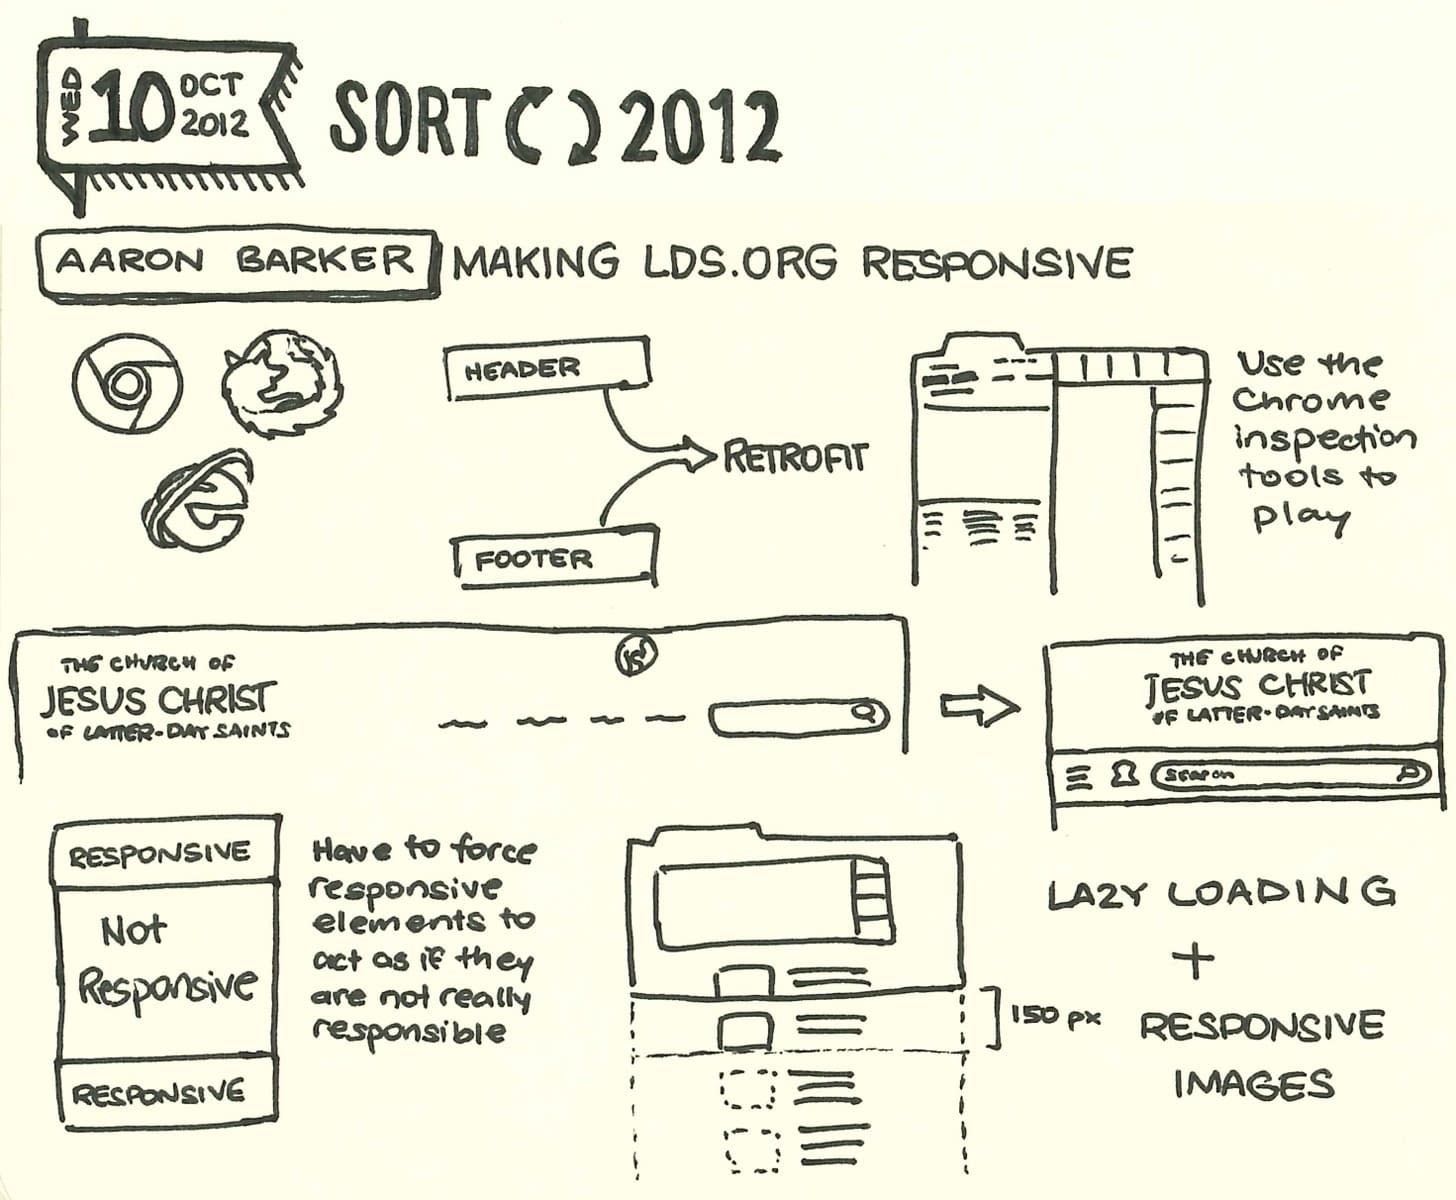 WED 10 OCT 2012
SORT 2012
AARON BARKER MAKING LDS.ORG RESPONSIVE
HEADER
RETROFIT
FOOTER
Use the
Chrome
inspection
tools to
play
THE CHURCH OF
JESUS CHRIST
OF LATTER-DAY SAINTS
THE CHURCH OF
JESUS CHRIST
OF LATTER-DAY SAINTS
Search
RESPONSIVE
Not
Responsive
RESPONSIVE
Have to force
responsive
elements to
act as if they
are not really
responsible
150 px
LAZY LOADING
+
RESPONSIVE
IMAGES